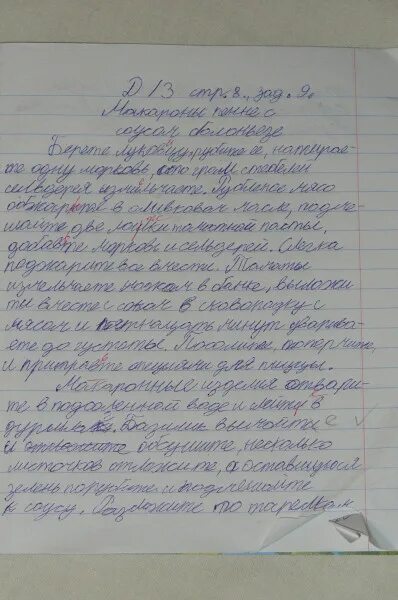 Д/З стр. 8., зад. 9.
Макароны пенне с
соусом болоньезе
Берете луковицу, рубите ее, натирае-
те одну морковь, сто грам стебели
сельдерея измельчаете. Рубленое мясо
обжарьте в оливковом масле, подме-
шайте две ложки томатной пасты,
добавте морковь и сельдерей. Слегка
поджарите все вместе. Томаты
измельчаете ножом в банке, выложи
ты вместе с соком в сковородку с
мясом и пятнацать минут уварива-
ете до густоты. Посолите, поперчите,
и приправте специями для пиццы.
Макаронные изделия отвари-
те в подсоленной воде и
дуршлаг. Базилик вымойте
и обсушите, несколько
листочков отложите, а оставшуюся
зелень порубите и подмешайте
к соусу. Разложите по тарелкам